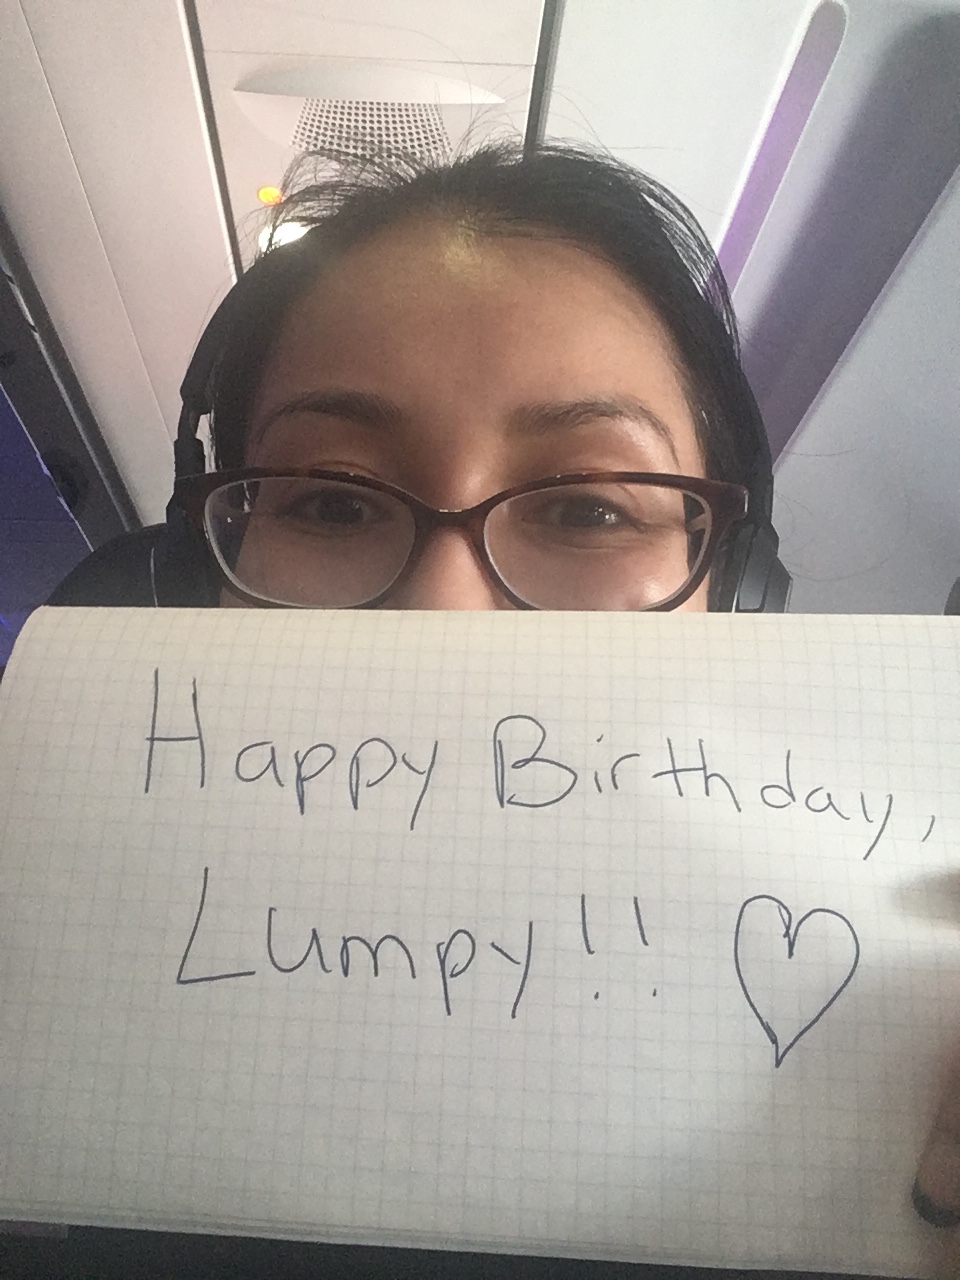 Happy Birthday,
Lumpy!! ♡